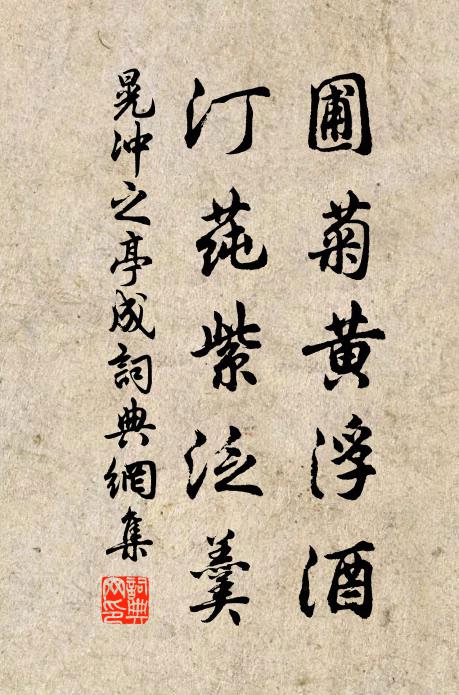 圃菊黄浮酒
汀莼紫泛羹
晁冲之亭成詞典網集
詞典
网印